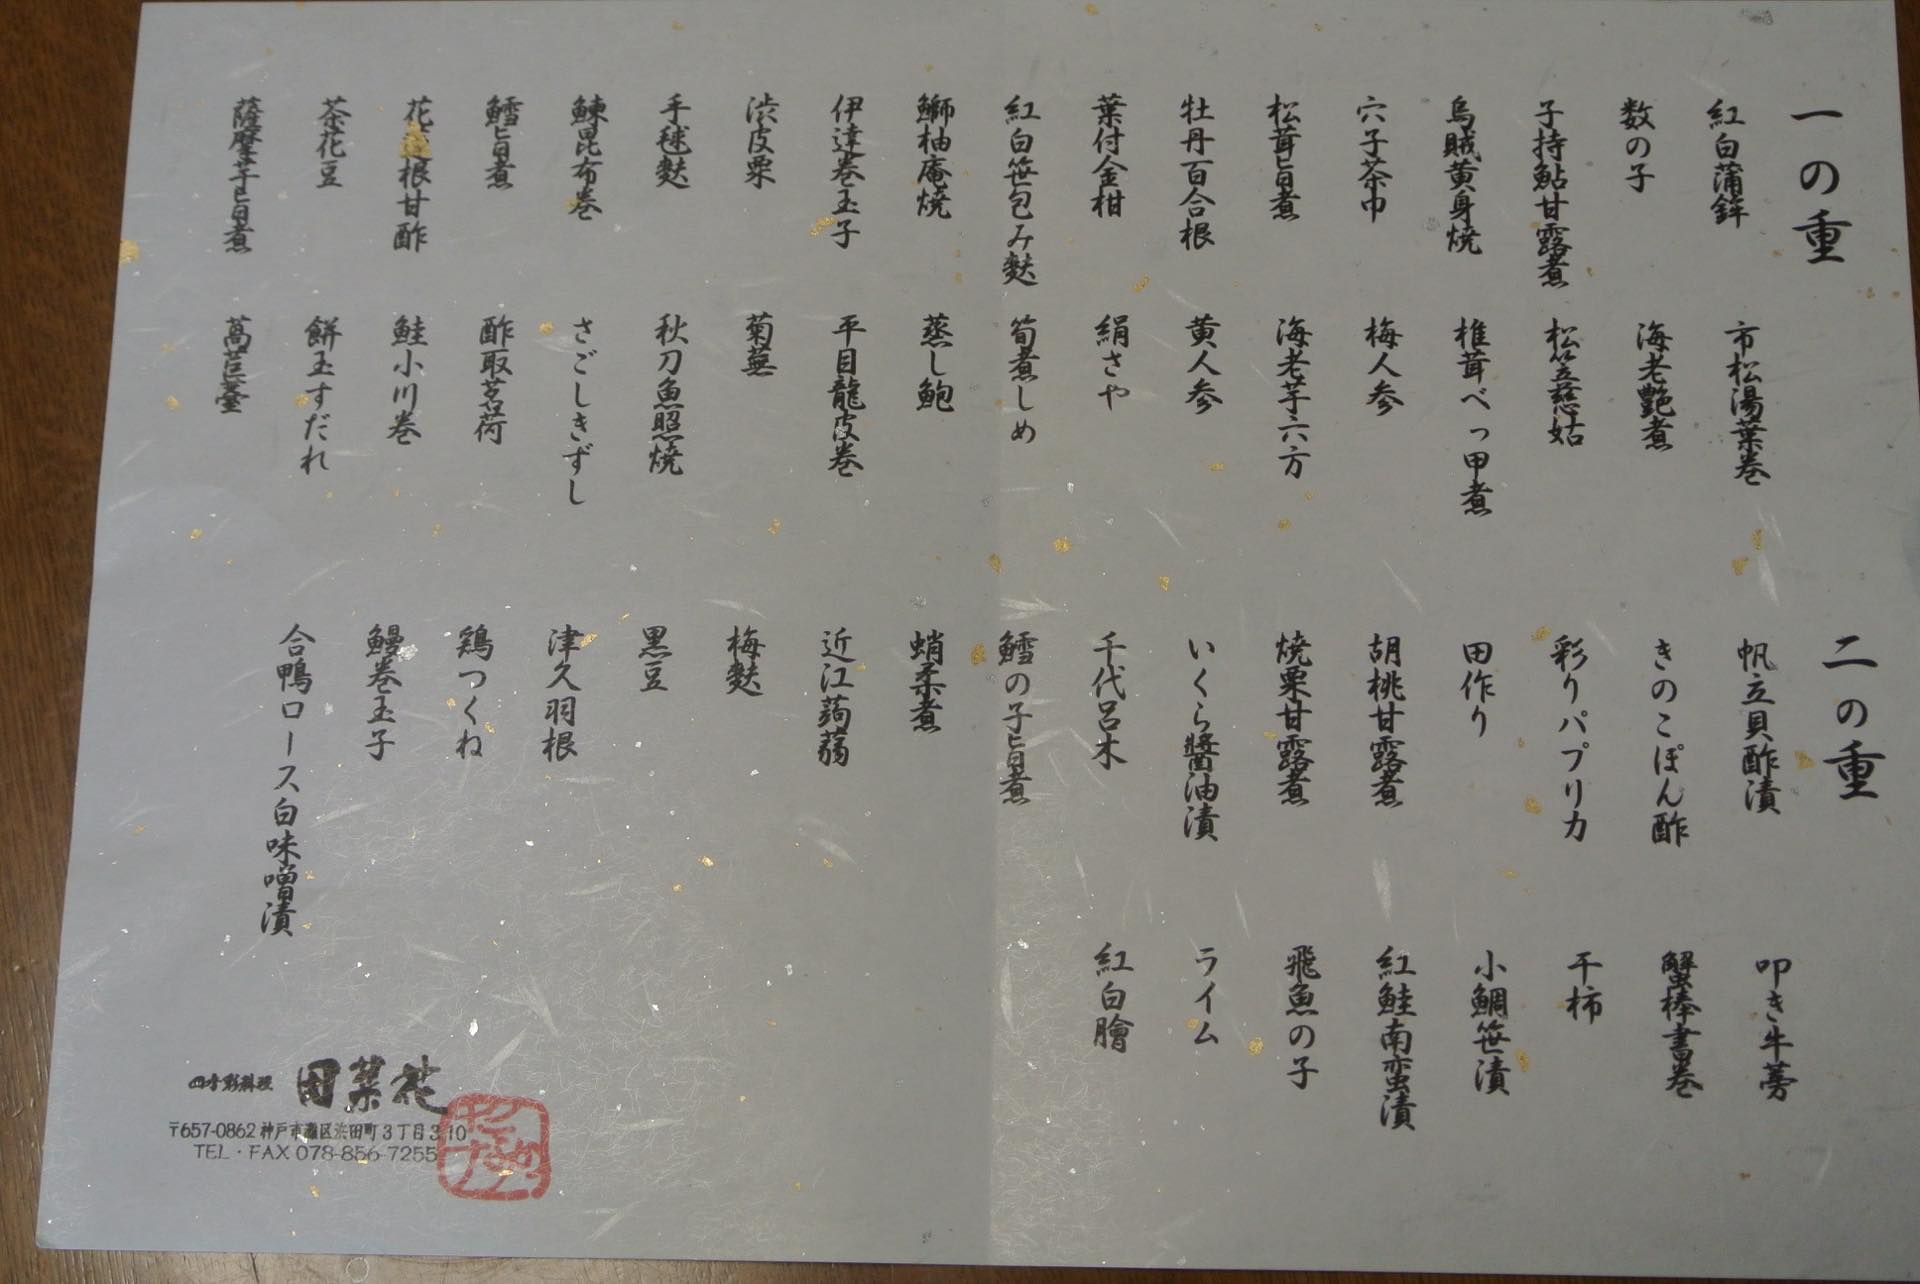 一の重
紅白蒲鉾
数の子
子持鮎甘露煮
烏賊黄身焼
穴子茶巾
松茸旨煮
牡丹百合根
葉付金柑
紅白笹包み麩
鰤柚庵焼
伊達巻玉子
渋皮栗
手毬麩
鰊昆布巻
鱈旨煮
花蓮根甘酢
茶花豆
薩摩芋旨煮
市松湯葉巻
海老艶煮
松笠慈姑
椎茸べっ甲煮
梅人参
海老芋六方
黄人参
絹さや
筍煮しめ
蒸し鮑
平目龍皮巻
菊蕪
秋刀魚照焼
さごしきずし
酢取茗荷
鮭小川巻
餅玉すだれ
萵苣薹
二の重
帆立貝酢漬
きのこぽん酢
彩りパプリカ
田作り
胡桃甘露煮
焼栗甘露煮
いくら醬油漬
千代呂木
鱈の子旨煮
蛸柔煮
近江蒟蒻
梅麩
黒豆
津久羽根
鶏つくね
鰻巻玉子
合鴨ロース白味噌漬
叩き牛蒡
蟹棒書巻
干柿
小鯛笹漬
紅鮭南蛮漬
飛魚の子
ライム
紅白膾
四季彩料理 田菜花
〒657-0862 神戸市灘区浜田町3丁目3-10
TEL・FAX 078-856-7255